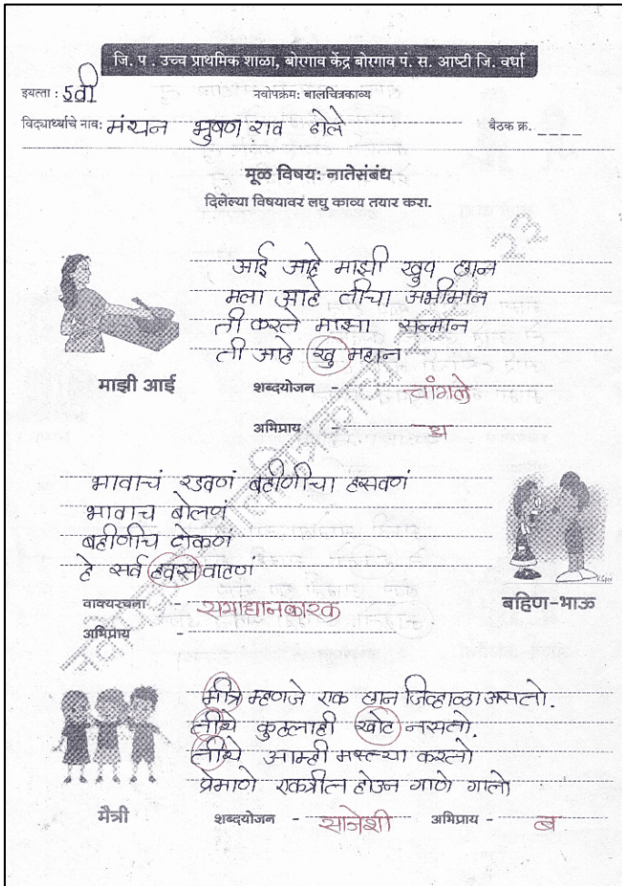 जि. प . उच्च प्राथमिक शाळा, बोरगाव केंद्र बोरगाव पं. स. आष्टी जि. वर्धा
इयत्ता : 5वी नवोपक्रम: बालचित्रकाव्य
विद्यार्थ्याचे नाव: मंथन भुषण राव ढोले बैठक क्र. _ _ _ _
मूळ विषय: नातेसंबंध
दिलेल्या विषयावर लघु काव्य तयार करा.
आई आहे माझी खुप छान
मला आहे तीचा अभीमान
ती करते माझा सन्मान
ती आहे खु महान
माझी आई
शब्दयोजन - चांगले
अभिप्राय -
भावाचं रडवणं बहीणीचा हसवणं
भावाच बोलणं
बहीणीच टोकणं
हे सर्व हवस वाटण
वाक्यरचना - समाधानकारक
बहिण-भाऊ
अभिप्राय -
मीत्र म्हणजे एक छान जिव्हाळा असतो.
तीथे कुठलाही खोट नसतो.
तीथे आम्ही मस्त्या करतो
प्रेमाणे एकत्रीत होउन गाणे गातो
मैत्री
शब्दयोजन - साजेशी अभिप्राय - ब